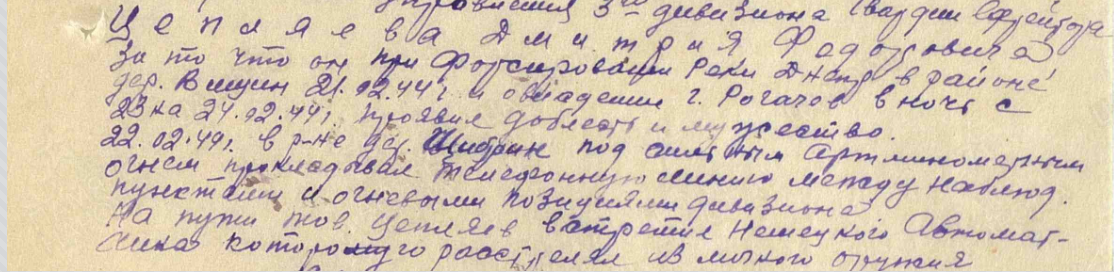 управления 3го дивизиона Гвардии Ефрейтора
Цепляева Дмитрия Федоровича
За то что он при форсировании реки Днепр в районе
дер. Вищин 21.02.44г. и овладении г. Рогачов в ночь с
23 на 24.02.44г. проявил доблесть и мужество.
22.02.44г. в р-не дер. под сильным артминометным
огнем прокладывал телефонную линию между наблюд.
пунктами и огневыми позициями дивизиона
На пути тов. Цепляев встретил Немецкого Автомат-
чика которого расстрелял из личного оружия